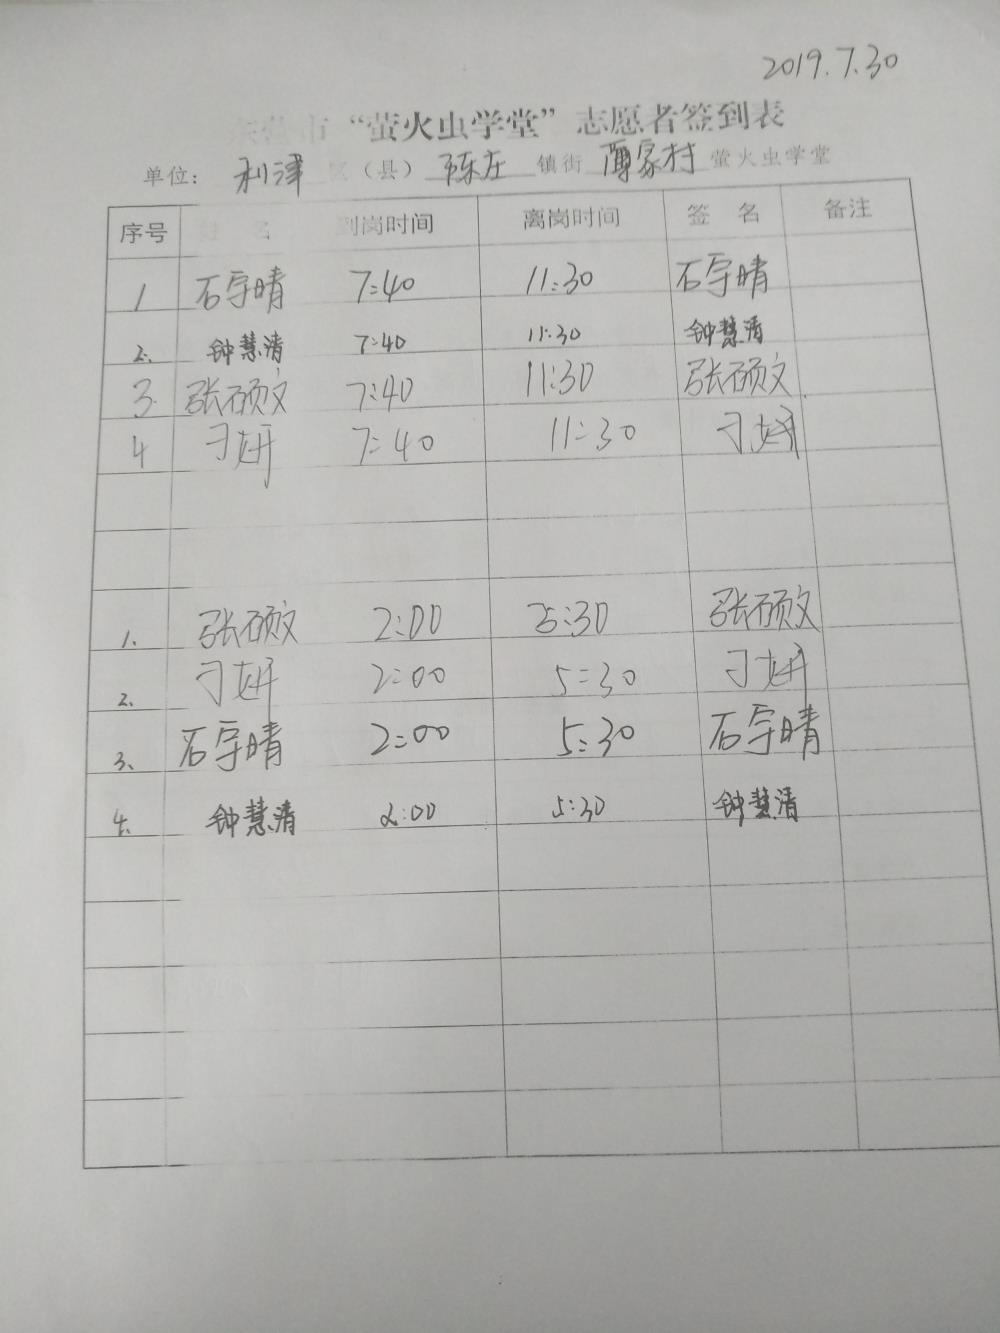 2019.7.30
东营市“萤火虫学堂”志愿者签到表
单位: 利津 区（县） 陈庄 镇街 薄家村 萤火虫学堂
序号 姓 名 到岗时间 离岗时间 签 名 备注
1 石宇晴 7:40 11:30 石宇晴
2. 钟慧清 7:40 11:30 钟慧清
3. 张硕文 7:40 11:30 张硕文
4 刁妍 7:40 11:30 刁妍
1. 张硕文 2:00 5:30 张硕文
2. 刁妍 2:00 5:30 刁妍
3. 石宇晴 2:00 5:30 石宇晴
4. 钟慧清 2:00 5:30 钟慧清